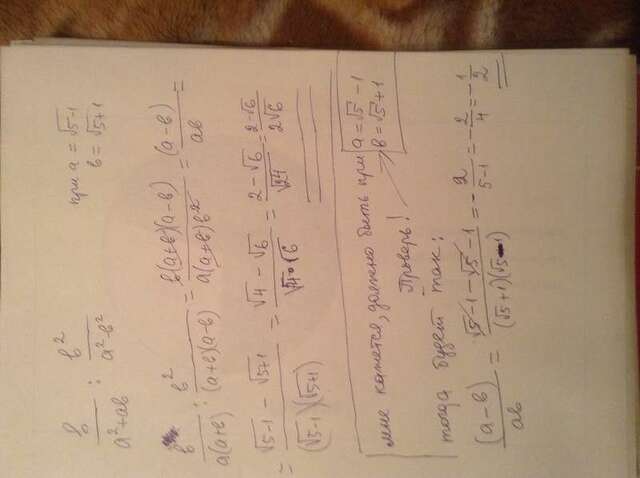 b/(a²+ab) : b²/(a²-b²) при a = √(5-1)
b = √(5+1)
b/(a(a+b)) : b²/((a+b)(a-b)) = b(a+b)(a-b)/(a(a+b)b²) = (a-b)/(ab) =
= (√(5-1) - √(5+1))/((√5-1)(√5+1)) = (√4 - √6)/(√4·√6) = (2-√6)/√24 = (2-√6)/(2√6)
мне кажется, должно быть при a = √5 - 1
b = √5 + 1
Проверь!
тогда будет так:
(a-b)/(ab) = (√5-1-√5-1)/((√5+1)(√5-1)) = -2/(5-1) = -2/4 = -1/2